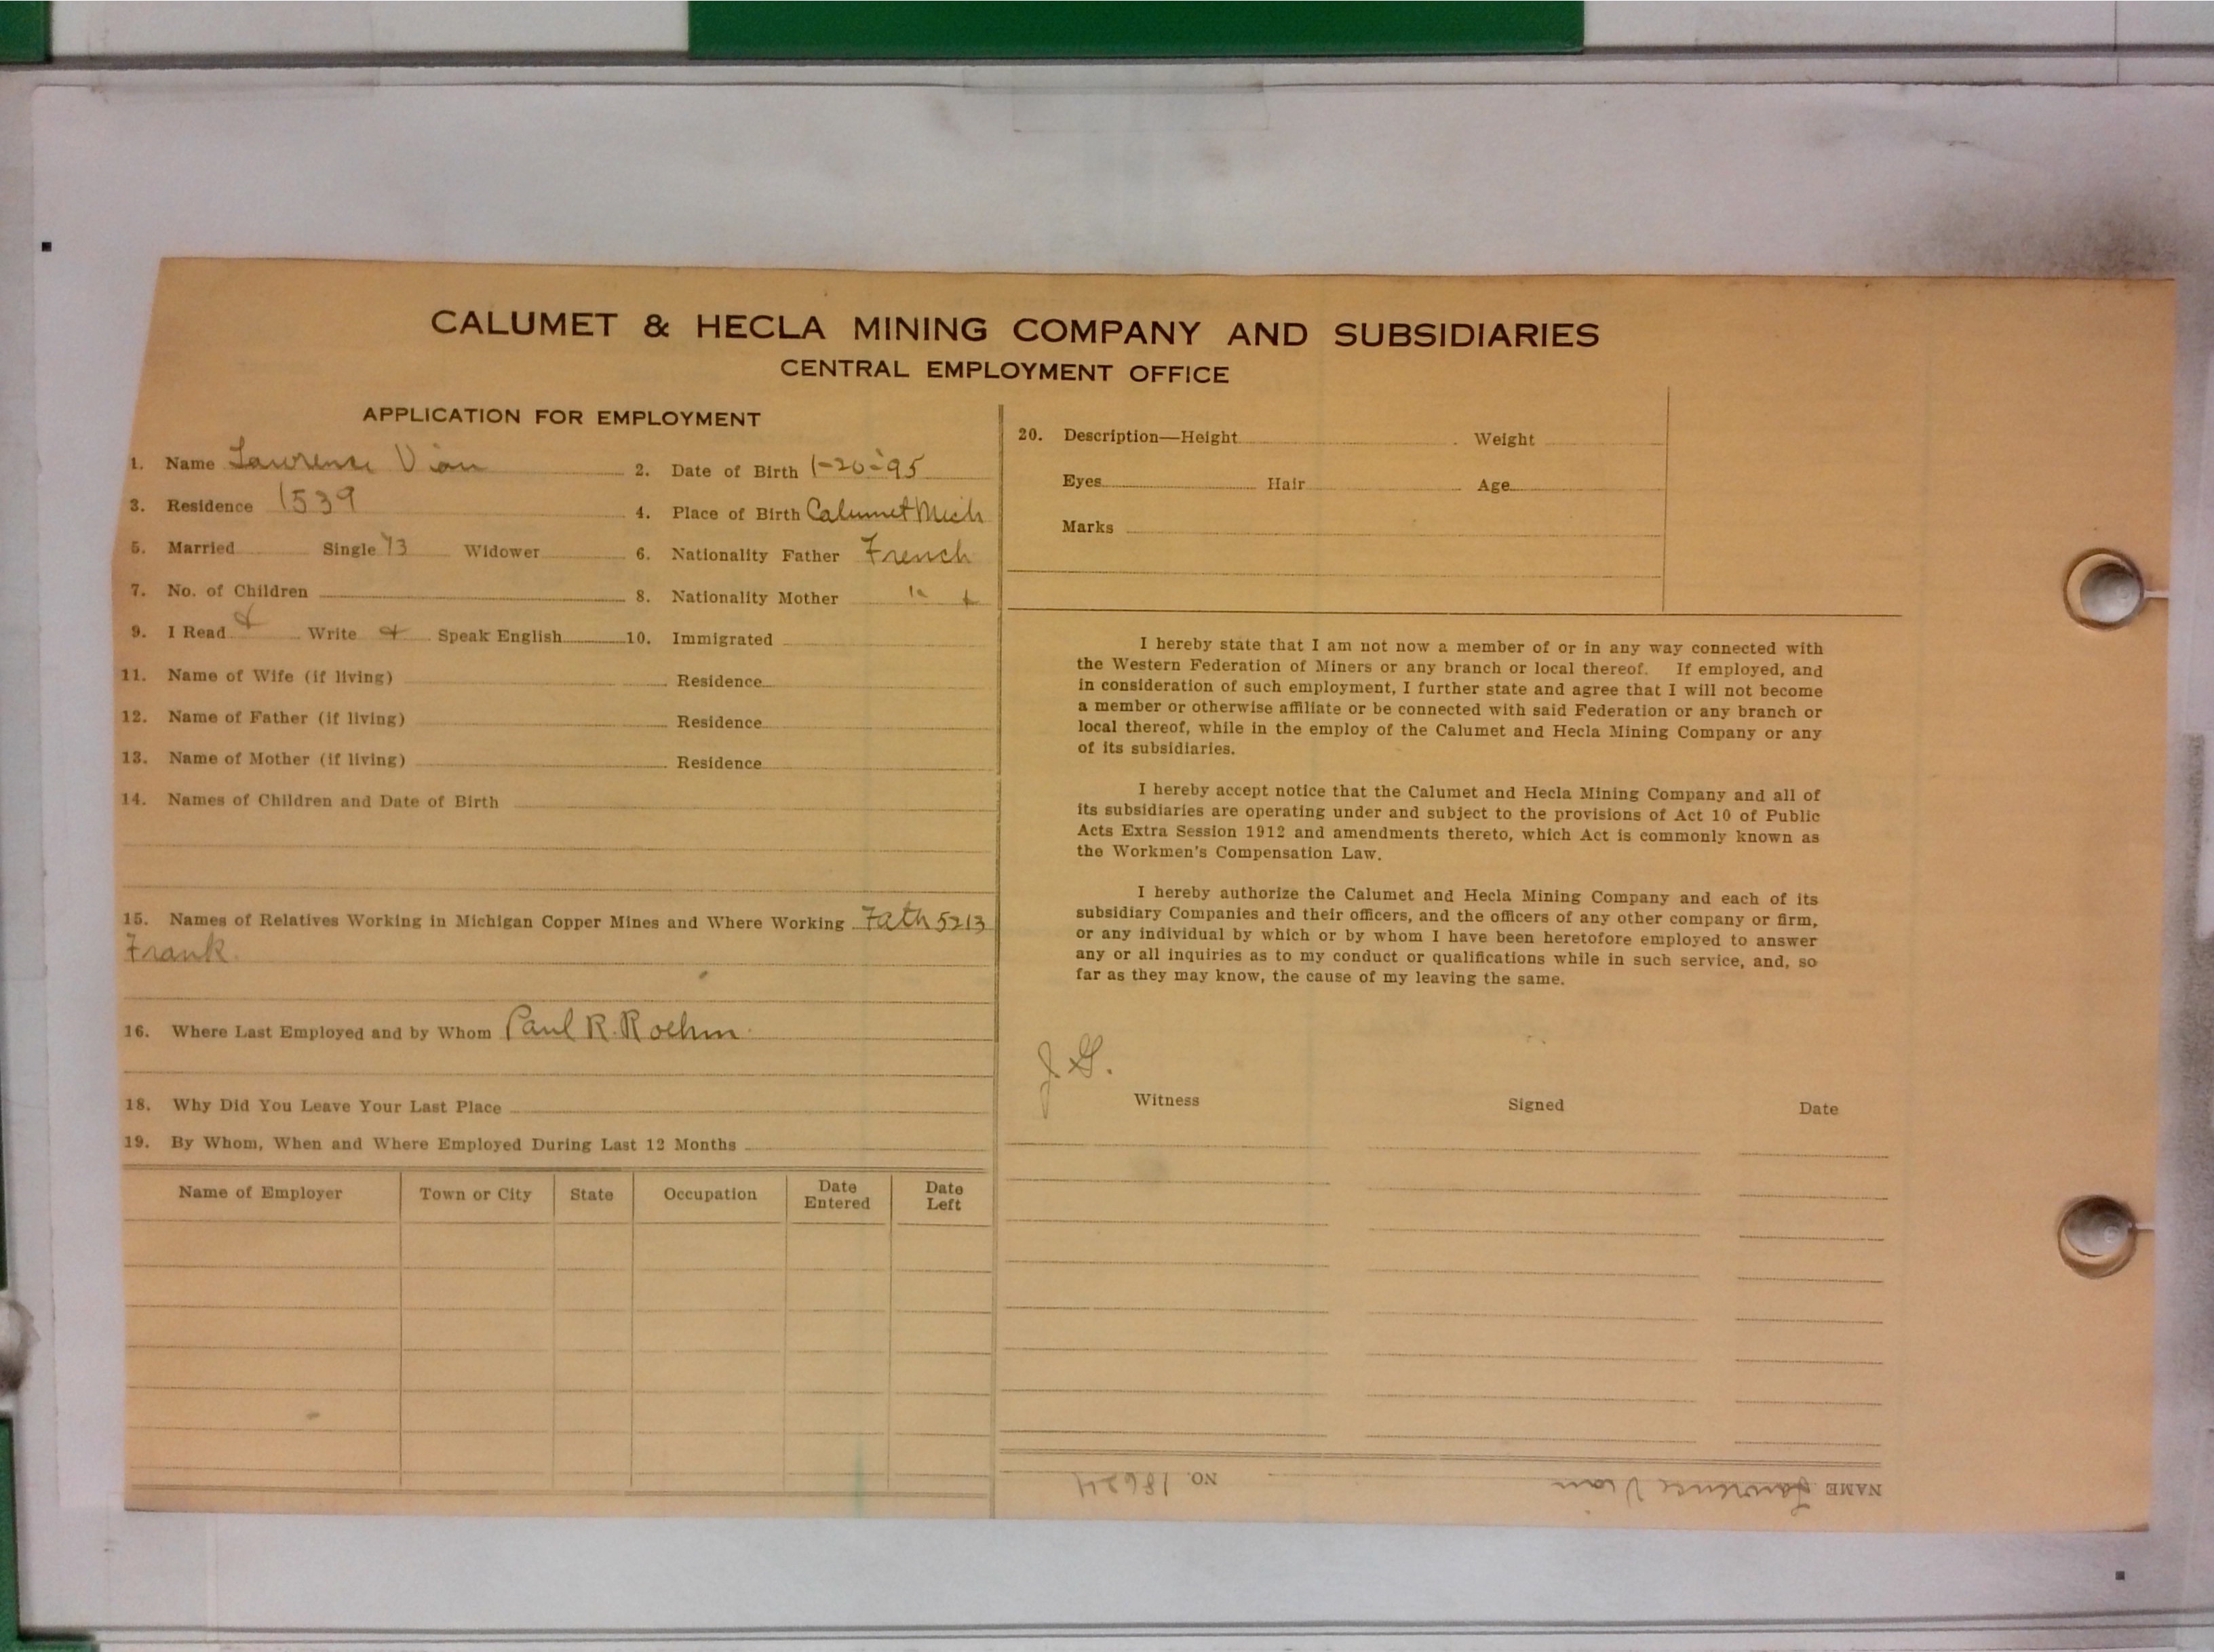 CALUMET & HECLA MINING COMPANY AND SUBSIDIARIES
CENTRAL EMPLOYMENT OFFICE
APPLICATION FOR EMPLOYMENT
1. Name Lawrence Vian 2. Date of Birth 1-20-'95
3. Residence 1539 4. Place of Birth Calumet Mich
5. Married Single 13 Widower 6. Nationality Father French
7. No. of Children 8. Nationality Mother "
9. I Read Write Speak English 10. Immigrated
11. Name of Wife (if living) Residence
12. Name of Father (if living) Residence
13. Name of Mother (if living) Residence
14. Names of Children and Date of Birth
15. Names of Relatives Working in Michigan Copper Mines and Where Working Fath 5213
Frank.
16. Where Last Employed and by Whom Paul R. Roehm
18. Why Did You Leave Your Last Place
19. By Whom, When and Where Employed During Last 12 Months
Name of Employer Town or City State Occupation Date Entered Date Left
20. Description—Height Weight
Eyes Hair Age
Marks
I hereby state that I am not now a member of or in any way connected with
the Western Federation of Miners or any branch or local thereof. If employed, and
in consideration of such employment, I further state and agree that I will not become
a member or otherwise affiliate or be connected with said Federation or any branch or
local thereof, while in the employ of the Calumet and Hecla Mining Company or any
of its subsidiaries.
I hereby accept notice that the Calumet and Hecla Mining Company and all of
its subsidiaries are operating under and subject to the provisions of Act 10 of Public
Acts Extra Session 1912 and amendments thereto, which Act is commonly known as
the Workmen's Compensation Law.
I hereby authorize the Calumet and Hecla Mining Company and each of its
subsidiary Companies and their officers, and the officers of any other company or firm,
or any individual by which or by whom I have been heretofore employed to answer
any or all inquiries as to my conduct or qualifications while in such service, and, so
far as they may know, the cause of my leaving the same.
J. G.
Witness Signed Date
NAME Lawrence Vian NO. 18624